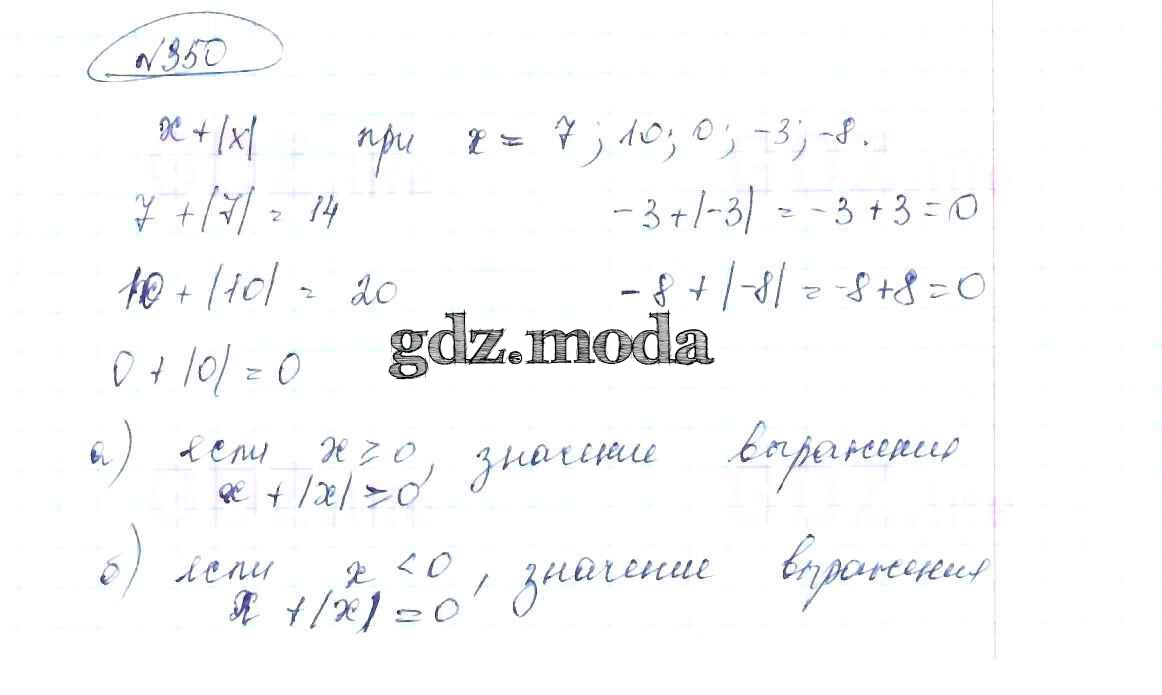 №350
x + |x| при x = 7; 10; 0; -3; -8.
7 + |7| = 14
-3 + |-3| = -3 + 3 = 0
10 + |10| = 20
-8 + |-8| = -8 + 8 = 0
gdz.moda
0 + |0| = 0
а) если x ≥ 0, значение выражения
x + |x| ≥ 0
б) если x < 0, значение выражения
x + |x| = 0